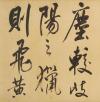 塵較岐
陽之獵
則飛黃